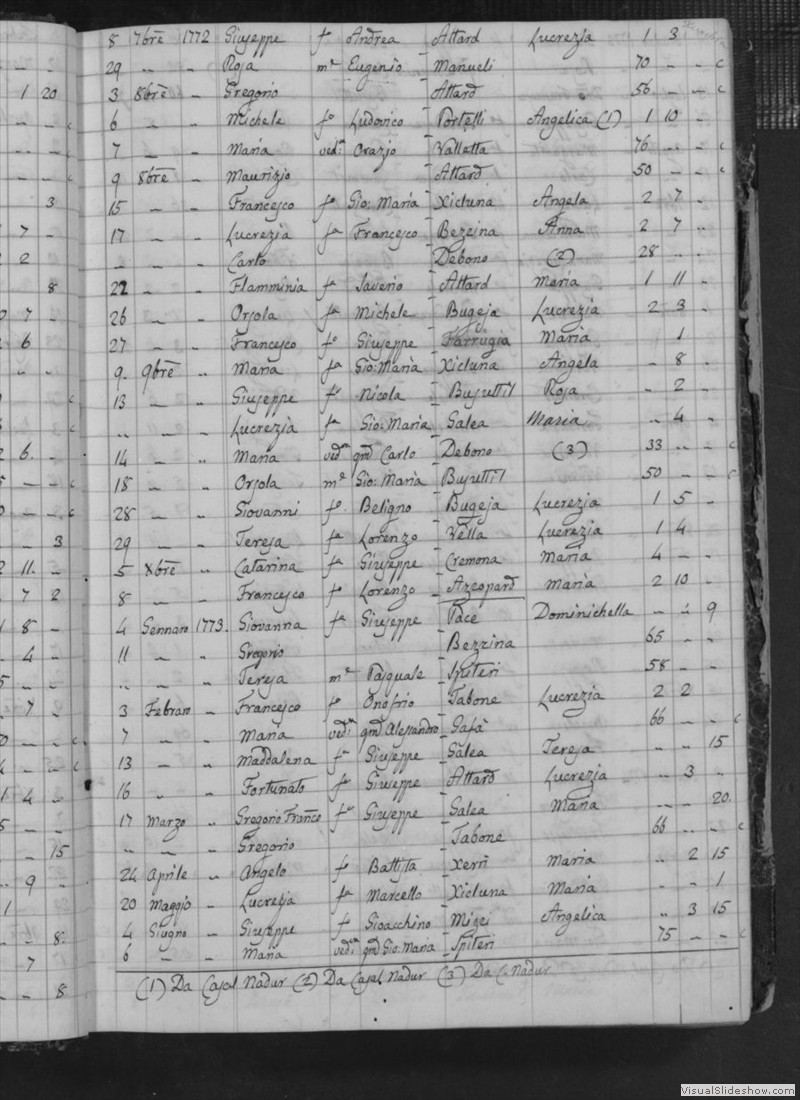 8 7brē 1772 Giuseppe fo Andrea Attard Lucrezia 1 3
29 „ „ – Rosa me Eugenio Manueli 70 – – c
1 20 3 8brē – Gregorio Attard 56 – – c
6 – – Michele fo Ludovico Portelli Angelica (1) 1 10 –
7 – – Maria veda Orazio Vallatta 76 – – c
9 8brē – Maurizio Attard 50 – – c
3 15 – – Francesco fo Gio: Maria Xicluna Angela 2 7 –
7 – 17 – – Lucrezia fa Francesco Bezeina Anna 2 7 –
2 – – – Carlo Debono (2) 28 – –
8 22 – – Flamminia fa Saverio Attard Maria 1 11 –
7 – 26 – – Orsola fa Michele Bugeja Lucrezia 2 3 –
6 27 – – Francesco fo Giuseppe Farrugia Maria 1
9 9brē „ Maria fa Gio: Maria Xicluna Angela – 8 –
13 – „ Giuseppe fo Nicola Busuttil Rosa – 2 –
„ – „ Lucrezia fa Gio: Maria Galea Maria „ 4 –
6. – 14 – „ Maria veda qm Carlo Debono (3) 33 – – c
18 – „ Orsola me Gio: Maria Busuttil 50 – – c
28 – „ Giovanni fo Beligno Bugeja Lucrezia 1 5 –
3 29 – „ Teresa fa Lorenzo Vella Lucrezia 1 4
11. – 5 Xbrē „ Catarina fa Giuseppe Cremona Maria 4 – –
7 2 8 – „ Francesco fo Lorenzo Azeopard Maria 2 10 –
8 – 4 Gennaro 1773. Giovanna fa Giuseppe Pace Dominichella – „ 9
4 – 11 „ „ Gregorio Bezzina 65 – –
„ – „ Teresa me Pasquale Spiteri 58 – –
7 – 3 Febraro – Francesco fo Onofrio Tabone Lucrezia 2 2
7 – „ Maria veda qm Alessandro Gafà 66 – – c
13 – „ Maddalena fa Giuseppe Galea Teresa „ „ 15
4 – 16 „ „ Fortunato fo Giuseppe Attard Lucrezia – 3 „
17 Marzo „ Gregorio Franco fo Giuseppe Galea Maria – – 20.
15 „ – „ Gregorio Tabone 66 – – c
9 24 Aprile „ Angelo fo Battista Xerri Maria „ 2 15
1 20 Maggio – Lucrezia fa Marcello Xicluna Maria – – 1
8 4 Giugno – Giuseppe fo Gioacchino Mizzi Angelica „ 3 15
7 6 – „ Maria veda qm Gio: Maria Spiteri 75 – – c
8 (1) Da Casal Nadur (2) Da Casal Nadur (3) Da C. Nadur
VisualSlideshow.com